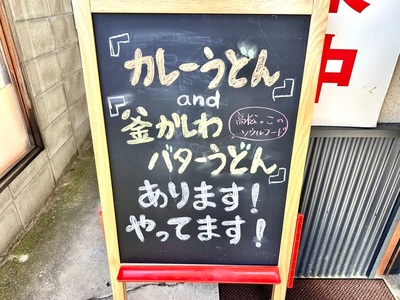 『カレーうどん』
and
『釜かしわ
高松っこの
ソウルフード
バターうどん』
あります!
やってます!
中